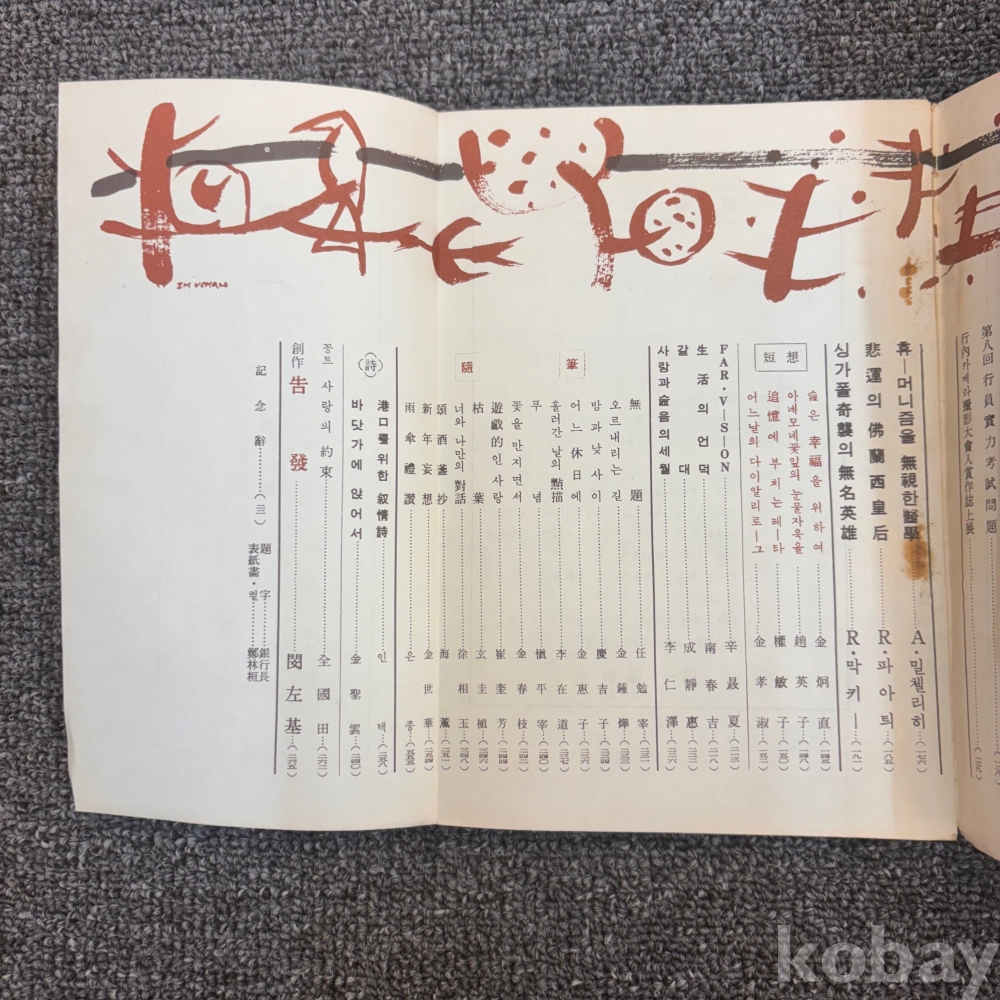 第八回行員實力考試問題
行內카메라撮影大會入賞作誌上展
휴—머니즘을 無視한 醫學 A·밀첼리히
悲運의 佛蘭西皇后 R·파아틔
싱가폴奇襲의 無名英雄 R·막키—
短想
슬은 幸福을 위하여 金炯直
아네모네꽃잎의 눈물자욱을 趙英子
追憶에 부치는 레—타 權敏子
어느날의 다이알리로—그 金孝淑
FAR·V—S—ON 辛最夏
生活의 언덕 南春吉
갈대 成靜惠
사랑과 슬음의 세월 李仁澤
隨筆
無題 任勉宰
오르내리는 길 金鍾燁
밤과 낮 사이 慶吉子
어느 休日에 金惠子
흘러간 날의 點描 李在道
푸념 愼平宰
꽃을 만지면서 金春枝
遊戱的인 사랑 崔奎芳
枯葉 玄圭植
너와 나만의 對話 徐相玉
頌酒盞抄 海薰
新年妄想 金世華
雨傘禮讚 은종
(詩)
港口를 위한 叙情詩 인택
바닷가에 앉어서 金聖雲
꽁트 사랑의 約束 全國田
創作 告發 閔左基
記念辭 (三)
題字 銀行長
表紙畫·컽 鄭林桓
IM UPHAN
kobay